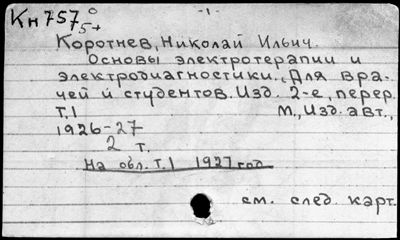 Кн 757⁰
-1-
5+
Коротнев, Николай Ильич.
Основы электротерапии и
электродиагностики. Для вра-
чей и студентов. Изд. 2-е, перер.
Т.1 М., Изд. авт.,
1926-27
2 т.
На обл. Т.1 1927 год
см. след. карт.